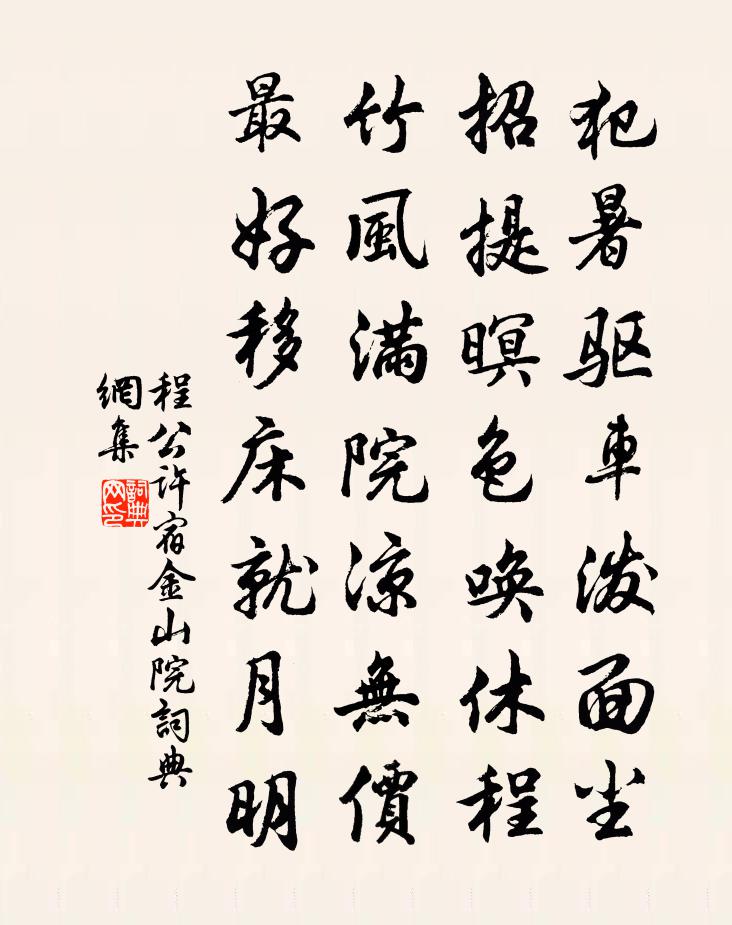 犯暑驱車泼面尘
招提暝色唤休程
竹風滿院涼無價
最好移床就月明
程公许宿金山院詞典
網集
詞典网印